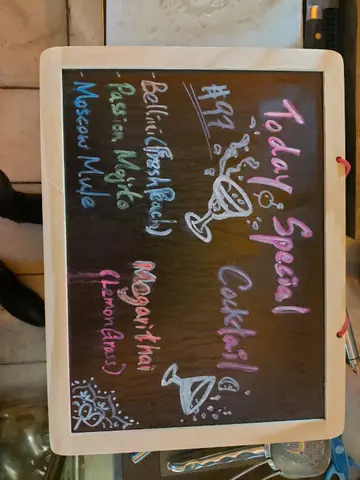 Today Special
Cocktail
#99
- Bellini (Fresh Peach)
- Passion Mojito
- Moscow Mule
Mogarithai
(LemonGrass)